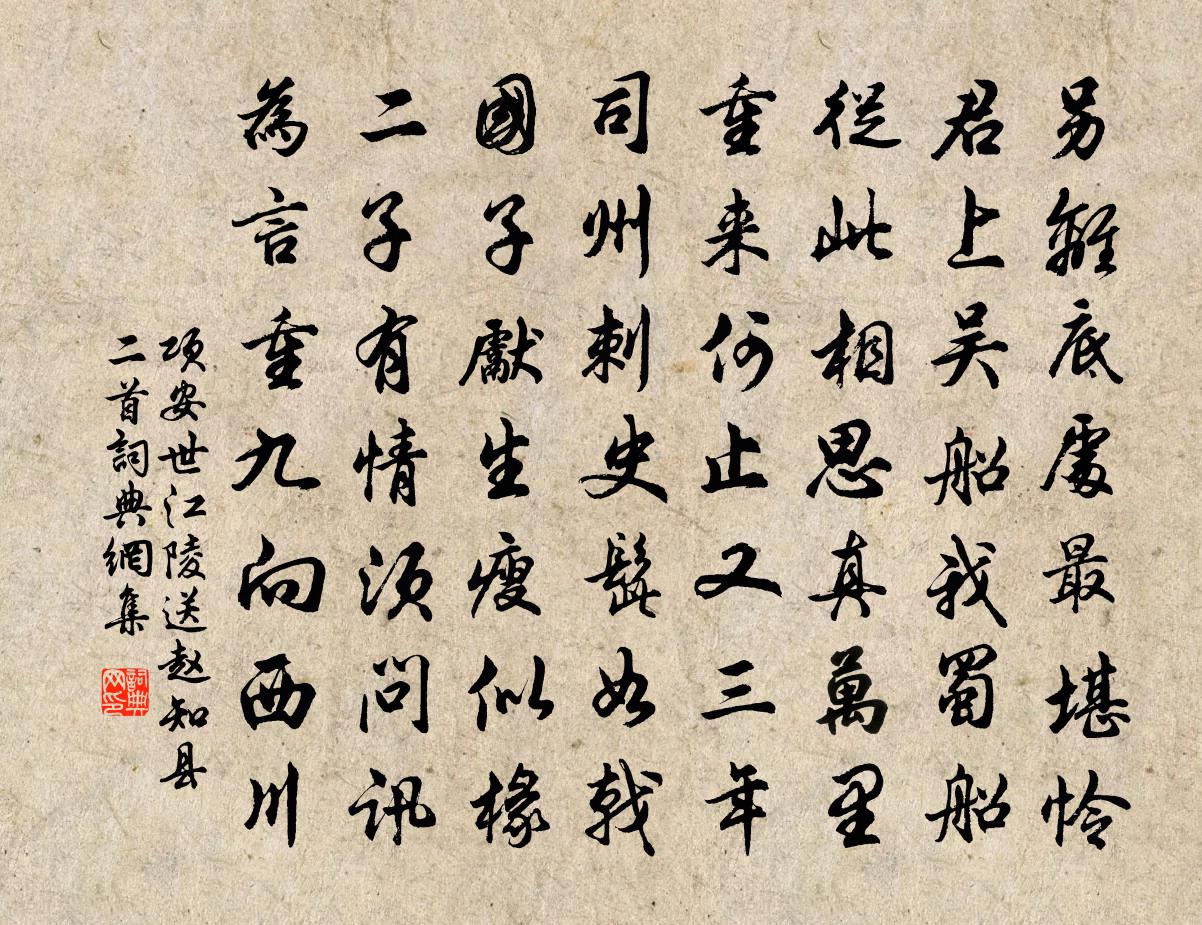 另離底處最堪怜
君上吴船我蜀船
從此相思真萬里
重来何止又三年
司州刺史髭如戟
國子獻生瘦似椽
二子有情須問訊
為言重九向西川
項安世江陵送赵知县
二首詞典網集
詞典网印